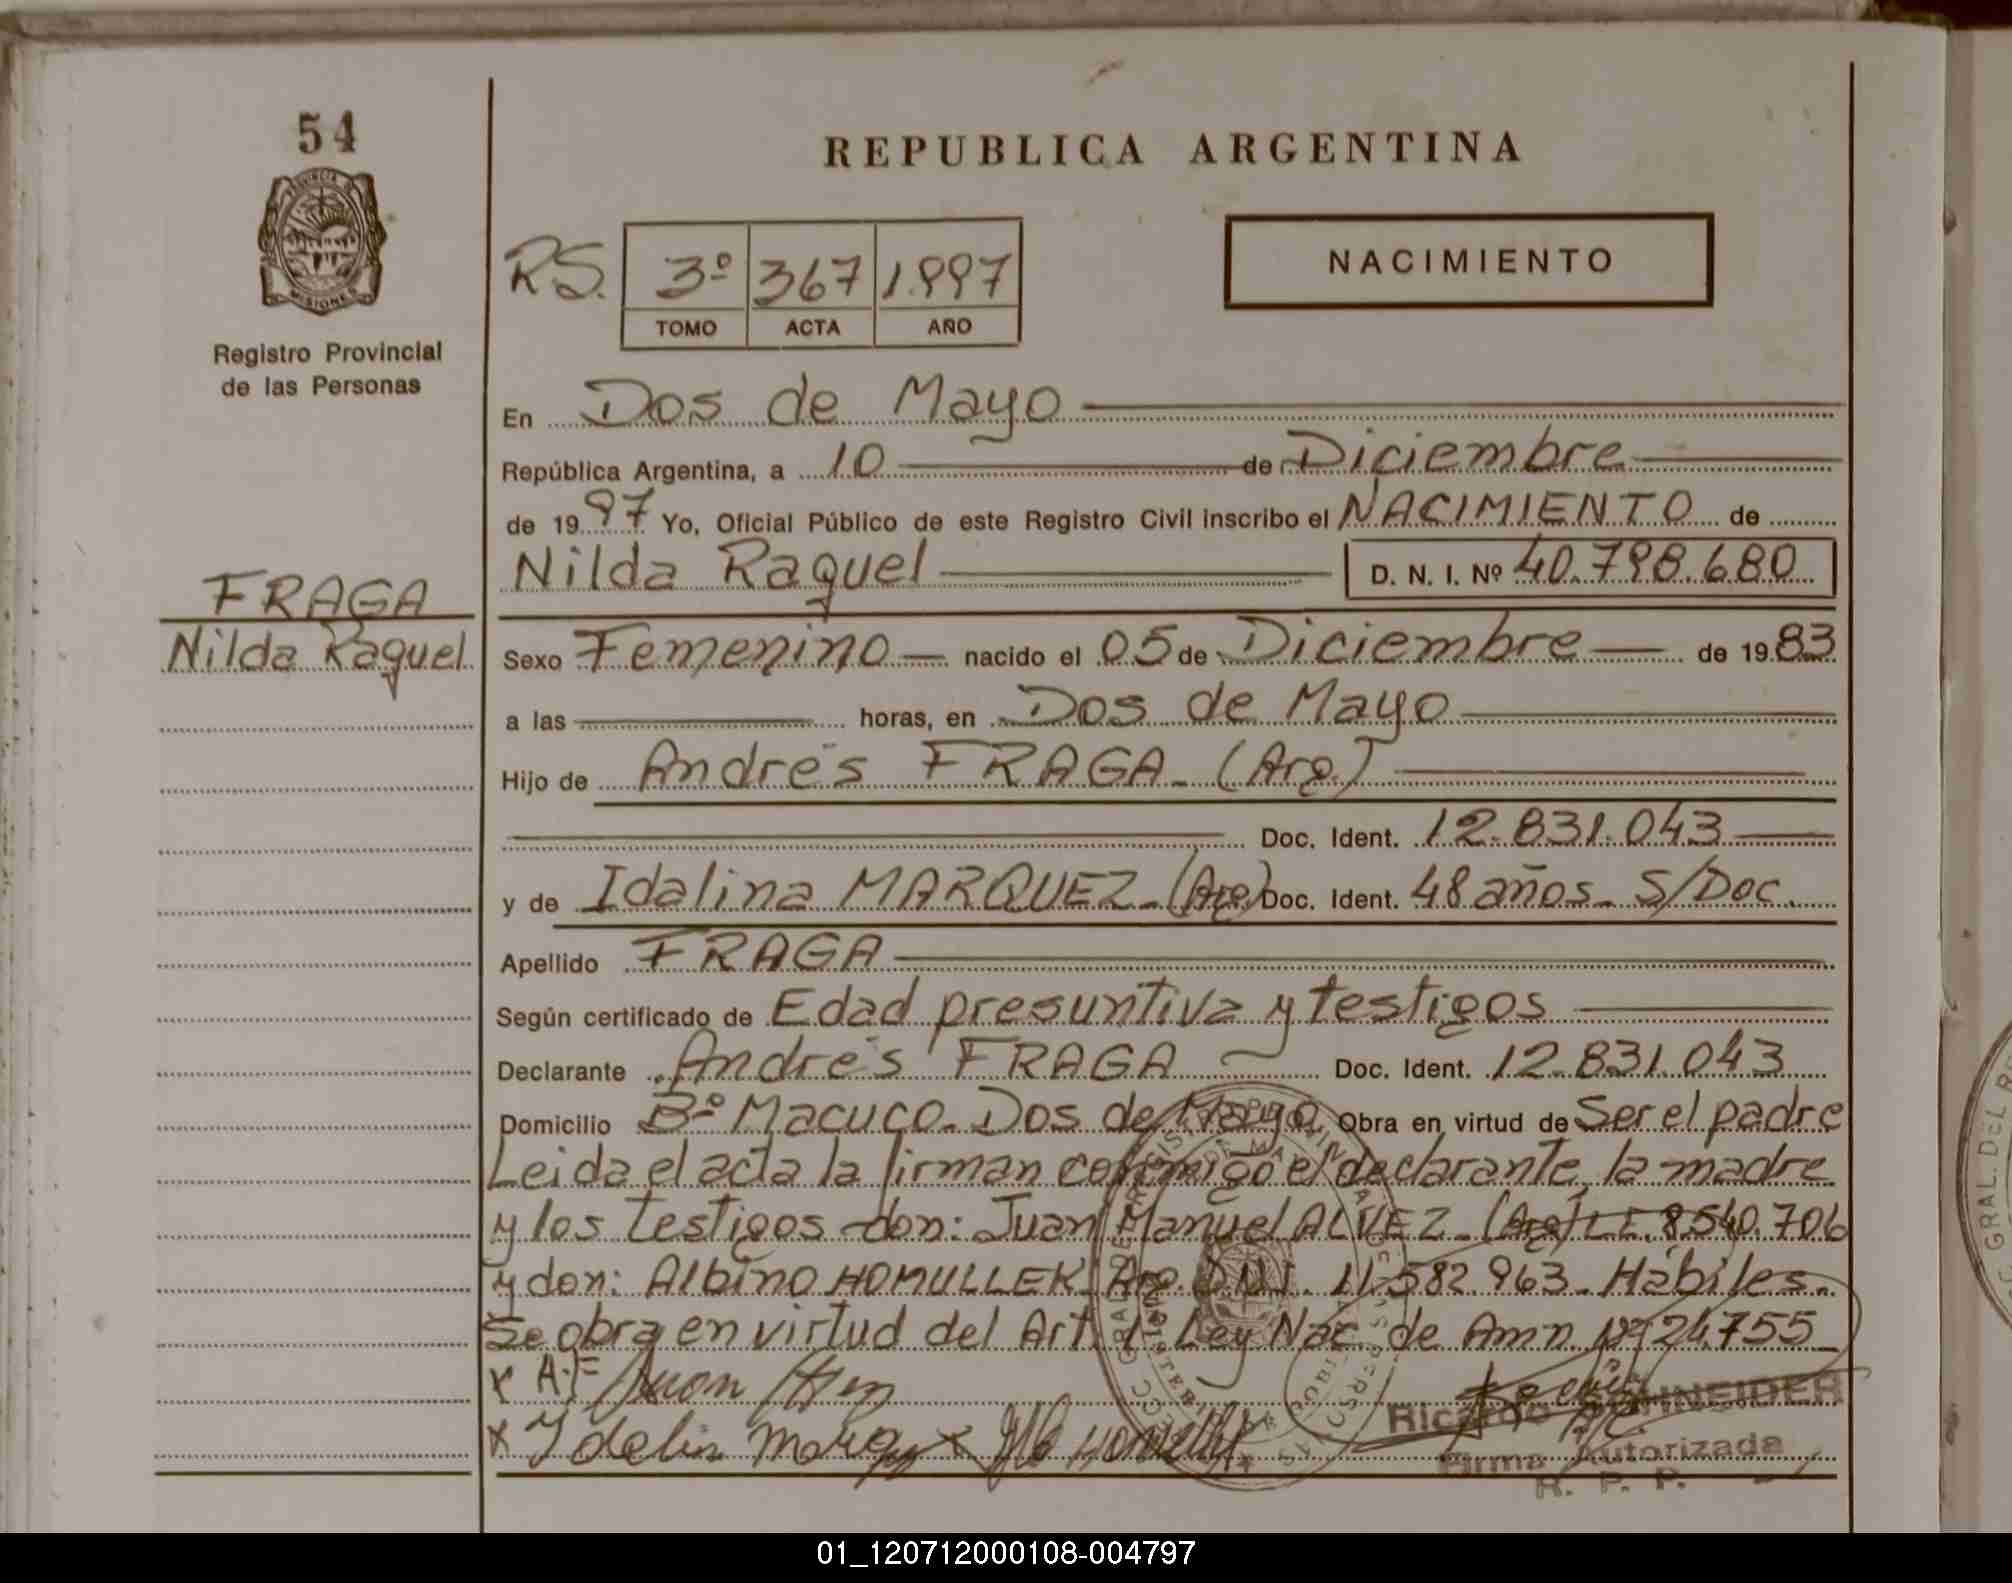 54
PROVINCIA DE
MISIONES
Registro Provincial
de las Personas
FRAGA
Nilda Raquel
REPUBLICA ARGENTINA
RS. 3º 367 1.997
TOMO ACTA AÑO
NACIMIENTO
En Dos de Mayo
República Argentina, a 10 de Diciembre
de 1997 Yo, Oficial Público de este Registro Civil inscribo el NACIMIENTO de
Nilda Raquel D. N. I. Nº 40.798.680
Sexo Femenino nacido el 05 de Diciembre de 1983
a las horas, en Dos de Mayo
Hijo de Andrés FRAGA - (Arg.)
Doc. Ident. 12.831.043
y de Idalina MARQUEZ - (Arg.) Doc. Ident. 48 años - S/Doc.
Apellido FRAGA
Según certificado de Edad presuntiva y testigos
Declarante Andrés FRAGA Doc. Ident. 12.831.043
Domicilio Bº Macuco - Dos de Mayo Obra en virtud de Ser el padre
Leida el acta la firman conmigo el declarante, la madre
y los testigos don: Juan Manuel ALVEZ - (Arg) L.E. 8.540.706
y don: Albino HOMULLEK Arg. D.N.I. 11.582.963 - Hábiles.
Se obra en virtud del Art. 1º Ley Nac. de Amn. Nº 24.755
x A.F
x
Ricardo SCHNEIDER
Firma Autorizada
R. P. P.
01_120712000108-004797